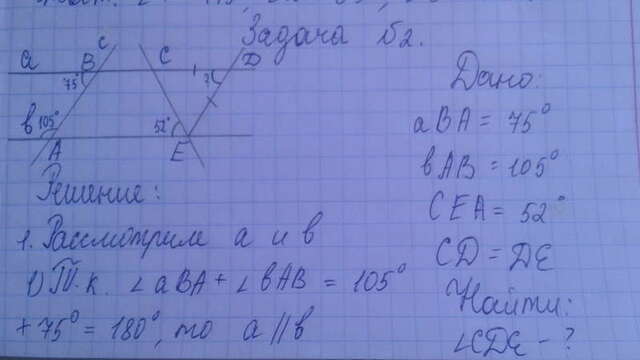 Задача №2.
a B c C D
75° ?
b 105° 52°
A E
Дано:
aBA = 75°
bAB = 105°
CEA = 52°
CD = DE
Найти:
∠CDE - ?
Решение:
1. Рассмотрим a и b
1) Т.к. ∠aBA + ∠bAB = 105°
+ 75° = 180°, то a || b